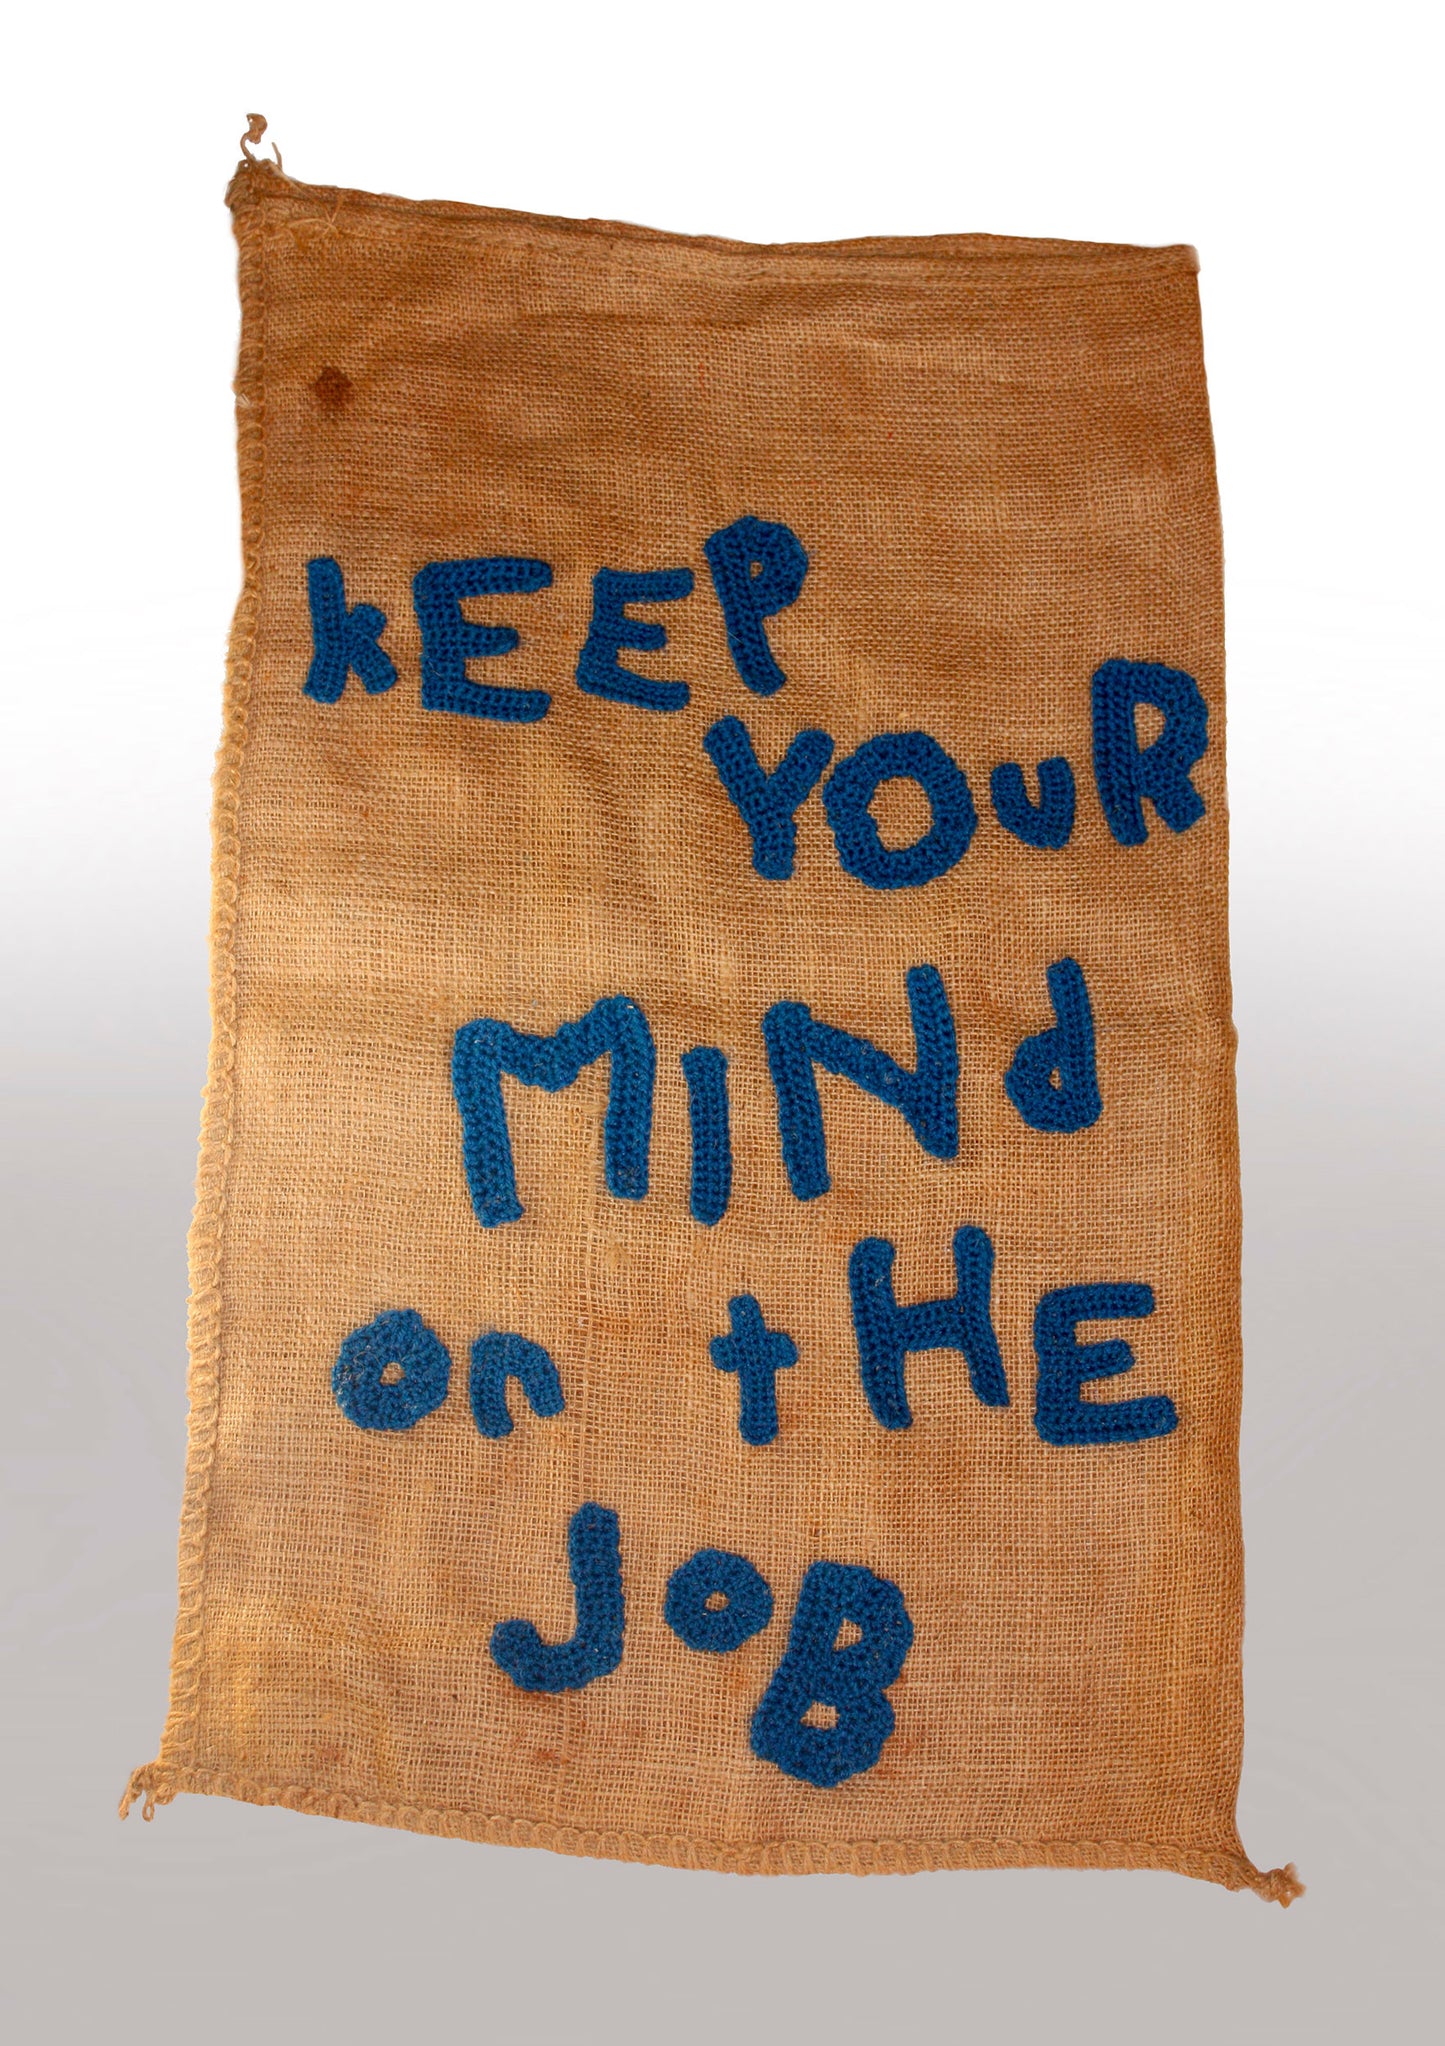 kEEP
YOuR
MIND
on tHE
JoB